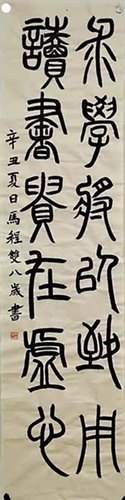 求學將以致用
讀書貴在虛心
辛丑夏日馬程雙八歲書